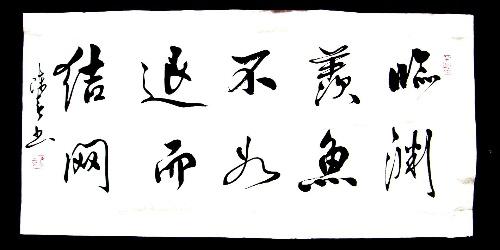 臨渊
羨魚
不如
退而
结网